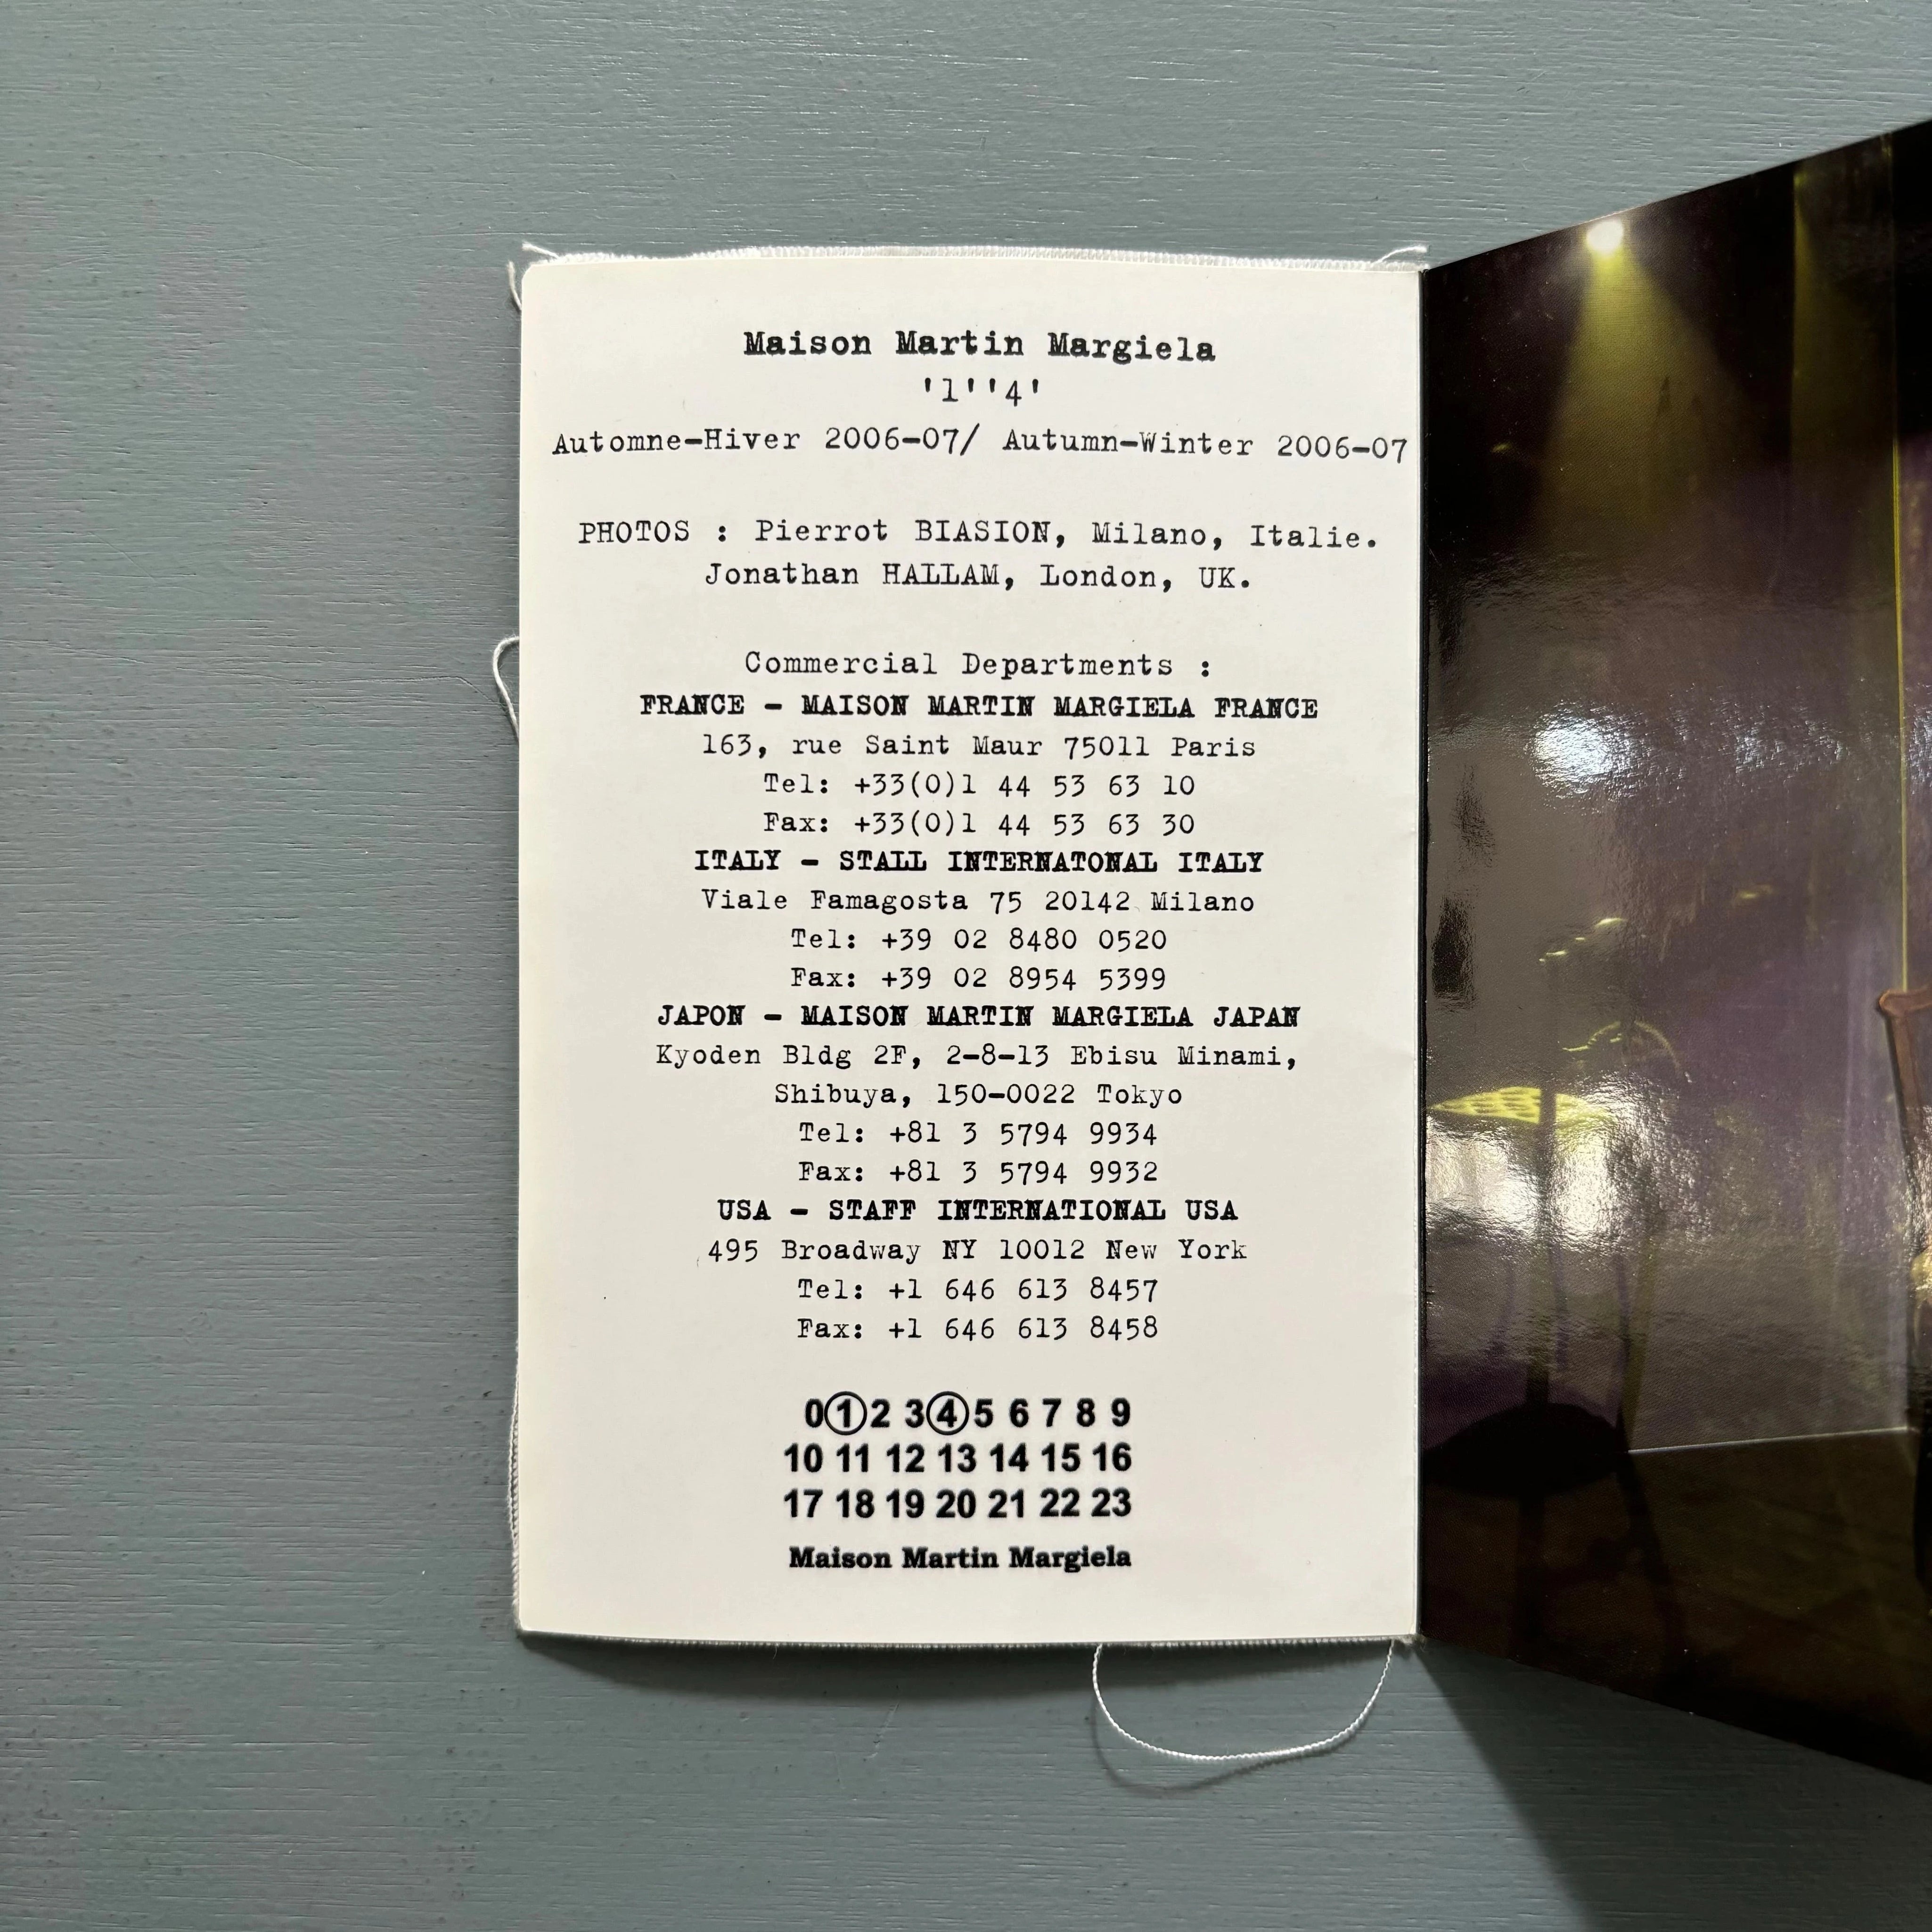 Maison Martin Margiela
'1''4'
Automne-Hiver 2006-07/ Autumn-Winter 2006-07
PHOTOS : Pierrot BIASION, Milano, Italie.
Jonathan HALLAM, London, UK.
Commercial Departments :
FRANCE - MAISON MARTIN MARGIELA FRANCE
163, rue Saint Maur 75011 Paris
Tel: +33(0)1 44 53 63 10
Fax: +33(0)1 44 53 63 30
ITALY - STALL INTERNATONAL ITALY
Viale Famagosta 75 20142 Milano
Tel: +39 02 8480 0520
Fax: +39 02 8954 5399
JAPON - MAISON MARTIN MARGIELA JAPAN
Kyoden Bldg 2F, 2-8-13 Ebisu Minami,
Shibuya, 150-0022 Tokyo
Tel: +81 3 5794 9934
Fax: +81 3 5794 9932
USA - STAFF INTERNATIONAL USA
495 Broadway NY 10012 New York
Tel: +1 646 613 8457
Fax: +1 646 613 8458
0 1 2 3 4 5 6 7 8 9
10 11 12 13 14 15 16
17 18 19 20 21 22 23
Maison Martin Margiela